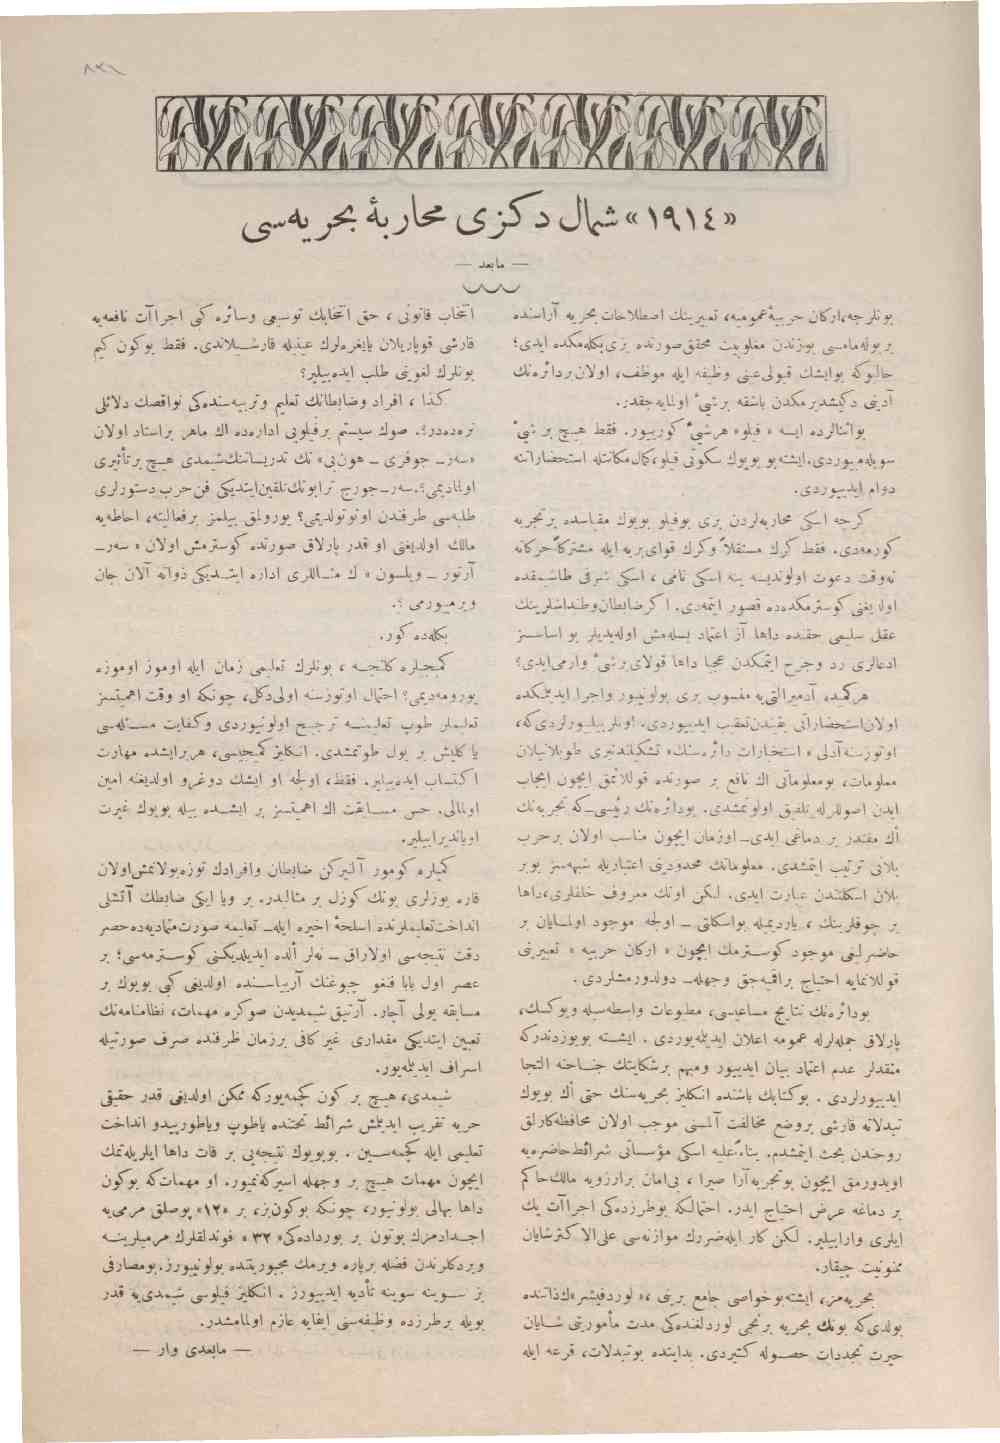 «١٩١٤» شمال دكزی محاربهٔ بحریه‌سی
— مابعد —
بونلرجه، اركان حربیهٔ عمومیه، تعبیرینك اصطلاحات بحریه آراسنده
بر بوله‌مامسی یوزندن مغلوبیت محقق صورنده بزی بكله‌مكده ایدی؛
حالبوكه بوایشك قبولی عینی وظیفه ایله موظف، اولان ردائره‌نك
آدینی دكیشدیرمكدن باشقه برشیٔ اولمایه‌جقدر.
بواثنالرده ایسه « فیلو » هرشیٔ كورییور. فقط هیچ بر شیٔ
سویله‌میوردی. ایشته‌بو بویوك سكوتی فیلو، كمال مكانتله استحضاراتنه
دوام ایدییوردی.
كرچه اسكی محاربه‌لردن بری بوفیلو بویوك مقیاسده بر تجربه
كورمه‌دی. فقط كرك مستقلاً وكرك قوای بریه ایله مشتركاً حركاته
نه‌وقت دعوت اولوندیسه ینه اسكی نامی، اسكی شرفی طاشیمقده
اولدیغنی كوسترمكده‌ده قصور ایتمه‌دی. اكر ضابطان وطنداشلرینك
عقل سلیمی حقنده داها آز اعتماد بسله‌مش اوله‌یدیلر بو اساسسز
ادعالری رد وجرح ایتمكدن عجبا داها قولای برشیٔ وارمی‌ایدی؟
هركسده، آدمیرالتی‌یه منسوب بری بولونییور واجرا ایدیلمكده
اولان استحضاراتی یقیندن تعقیب ایدییوردی. اونلر بیلیورلردی‌كه،
اوتوز سنه آدلی « استخبارات دائره‌سنك » تشكیلندنبری طوپلانیلان
معلومات، بومعلوماتی اك نافع بر صورتده قوللانمق ایچون ایجاب
ایدن اصوللرله تلفیق اولونمشدی. بودائره‌نك رئیسی ـ كه تجربه‌نك
أك مقتدر بر دماغی ایدی ـ اوزمان ایچون مناسب اولان برحرب
پلانی ترتیب ایتمشدی. معلوماتك محدودیتی اعتباریله شبهه‌سز بوبر
پلان اسكلتندن عبارت ایدی. لكن اونك معروف خلفلری، داها
بر چوقلرینك، یاردیمیله بواسكلتی ـ اولجه موجود اولمایان بر
حاضرلیغی موجود كوسترمك ایچون « اركان حربیه » تعبیرینی
قوللانمایه احتیاج براقمیه‌جق وجهله ـ دولدورمشلردی.
بودائره‌نك نتایج مساعیسی، مطبوعات واسطه‌سیله ویوكسك،
پارلاق جمله‌لرله عمومه اعلان ایدیلمه‌یوردی. ایشته بویوزدندركه
منقدلر عدم اعتماد بیان ایدییور ومبهم برشكایتك جناحنه التجا
ایدییورلردی. بوكتابك باشنده انكلیز بحریه‌سنك حتی أك بویوك
تبدلاته قارشی بروضع مخالفت آلمسی موجب اولان محافظه‌كارلق
روحندن بحث ایتمشدم. بناءً علیه اسكی مؤسساتی شرائط حاضره‌یه
اویدورمق ایچون بوتجربه‌آرا صیرا، بی‌امان برارزویه مالك حاكم
بر دماغه عرض احتیاج ایدر. احتمالكه بوطرزده‌كی اجراآت پك
ایلری وارابیلیر. لكن كار ایله ضررك موازنه‌سی علی‌الاكثر شایان
ممنونیت چیقار.
بحریه‌مز، ایشته‌بو خواصی جامع برینی، « لورد فیشر » ك ذاتنده
بولدی‌كه بونك بحریه برنجی لوردلغنده‌كی مدت مأموریتی شایان
حیرت تجددات حصوله كتیردی. بدایتده بوتبدلات، قرعه ایله
انتخاب قانونی، حق انتخابك توسیعی وسائره كبی اجراآت نافعه‌یه
قارشی قوپاریلان یایغره‌لرك عینیله قارشیلاندی. فقط بوكون كیم
بونلرك لغوینی طلب ایده‌بیلیر؟
كذا، افراد وضابطانك تعلیم وتربیه‌سنده‌كی نواقصك دلائلی
نره‌ده‌در؟. صوك سیستم برفیلویی اداره‌ده اك ماهر براستاد اولان
«سه‌ر ـ جوفری ـ هون‌بی» نك تدریساتنك شیمدی هیچ برتأثیری
اولمادیمی؟. سه‌ر ـ جورج ترایونك تلقین ایتدیكی فن حرب دستورلری
طلبه‌سی طرفندن اونوتولدیمی؟ یورولمق بیلمز برفعالیته، احاطه‌یه
مالك اولدیغنی او قدر پارلاق صورتده كوسترمش اولان « سه‌ر ـ
آرتور ـ ویلسون » ك مثاللری اداره ایتدیكی ذواته آلان جان
ویرمیورمی ؟.
بكله‌ده كور.
كمیجیلره كلنجه، بونلرك تعلیمی زمان ایله اوموز اوموزه
یورومه‌دیمی؟ احتمال اوتوز سنه اولی دكل، چونكه او وقت اهمیتسز
تعلیملر طوپ تعلیمنه ترجیح اولونیوردی وكفایت مسئله‌سی
یاكلیش بر یول طوتمشدی. انكلیز كمیجیسی، هربرایشده مهارت
اكتساب ایده‌بیلیر. فقط، اولجه او ایشك دوغرو اولدیغنه امین
اولمالی. حس مسابقت اك اهمیتسز بر ایشده بیله بویوك غیرت
اویاندیرابیلیر.
كمیلره كومور آلنیركن ضابطان وافرادك توزه‌بولانمش‌اولان
قاره یوزلری بونك كوزل بر مثالیدر. بر ویا ایكی ضابطك آتشلی
انداخت تعلیملرنده اسلحهٔ اخیره ایله ـ تعلیمه صورت متمادیه‌ده حصر
دقت نتیجه‌سی اولاراق ـ نه‌لر ألده ایدیلدیكنی كوسترمه‌سی؛ بر
عصر اول بابا فنغو چبوغنك آرمیاسنده اولدیغی كبی بویوك بر
مسابقه یولی آچار. آرتیق شیمدیدن صوكره مهمات، نظامنامه‌نك
تعیین ایتدیكی مقداری غیركافی برزمان ظرفنده صرف صورتیله
اسراف ایدیلمه‌یور.
شیمدی، هیچ بر كون كچمه‌یوركه ممكن اولدیغی قدر حقیقی
حربه تقریب ایدیلمش شرائط تحتنده یاطوپ ویاطورپیدو انداخت
تعلیمی ایله كچمه‌سین. بوبویوك نتیجه‌یی بر قات داها ایلریله‌تمك
ایچون مهمات هیچ بر وجهله اسیركه‌نمیور. او مهمات‌كه بوكون
داها بهالی بولونیور، چونكه بوكون‌بز، بر «١٢» پوصلق مرمی‌یه
اجدادمزك بوتون بر بورداده‌كی « ٣٢ » فوندلقلرك مرمیلرینه
ویردكلرندن فضله برپاره ویرمك مجبوریتنده بولونییورز. بومصارفی
بز سوینه سوینه تأدیه ایدییورز. انكلیز فیلوسی شیمدی‌یه قدر
بویله برطرزده وظیفه‌سنی ایفایه عازم اولمامشدر.
— مابعدی وار —